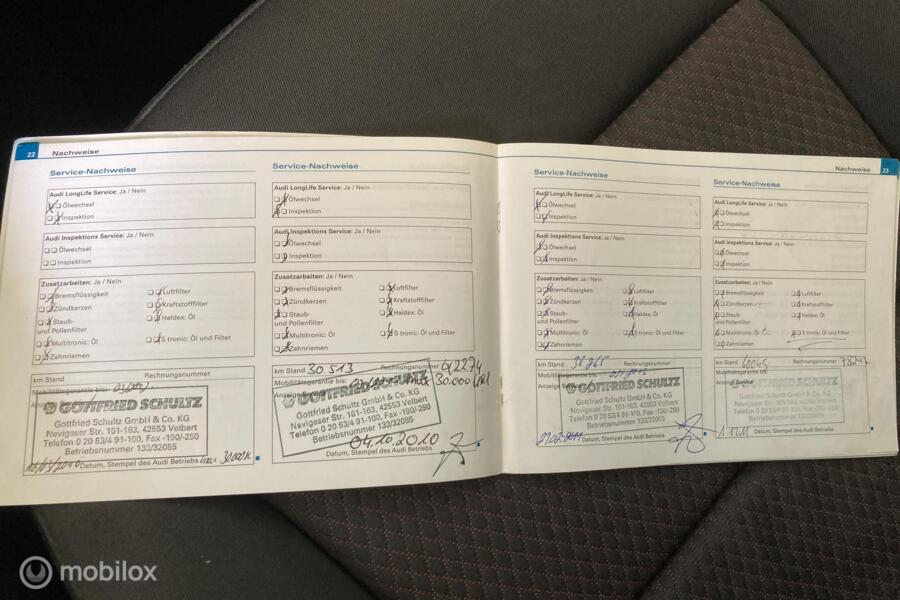 22 Nachweise
Service-Nachweise
Audi LongLife Service: Ja / Nein
Ölwechsel
Inspektion
Audi Inspektions Service: Ja / Nein
Ölwechsel
Inspektion
Zusatzarbeiten: Ja / Nein
Bremsflüssigkeit
Luftfilter
Zündkerzen
Kraftstofffilter
Staub-
und Pollenfilter
Haldex: Öl
Multitronic: Öl
S tronic: Öl und Filter
Zahnriemen
km Stand Rechnungsnummer
Mobilitätsgarantie bis:
GOTTFRIED SCHULTZ
Gottfried Schultz GmbH & Co. KG
Nevigeser Str. 161-163, 42553 Velbert
Telefon 0 20 53/4 91-100, Fax -190/-290
Betriebsnummer 133/32085
Datum, Stempel des Audi Betriebs
Service-Nachweise
Audi LongLife Service: Ja / Nein
Ölwechsel
Inspektion
Audi Inspektions Service: Ja / Nein
Ölwechsel
Inspektion
Zusatzarbeiten: Ja / Nein
Bremsflüssigkeit
Luftfilter
Zündkerzen
Kraftstofffilter
Staub-
und Pollenfilter
Haldex: Öl
Multitronic: Öl
S tronic: Öl und Filter
Zahnriemen
km Stand 30.513 Rechnungsnummer 612274
Mobilitätsgarantie bis: 30.000
Anzeige
GOTTFRIED SCHULTZ
Gottfried Schultz GmbH & Co. KG
Nevigeser Str. 161-163, 42553 Velbert
Telefon 0 20 53/4 91-100, Fax -190/-290
Betriebsnummer 133/32085
04.10.2010
Datum, Stempel des Audi Betriebs
Nachweise 23
Service-Nachweise
Audi LongLife Service: Ja / Nein
Ölwechsel
Inspektion
Audi Inspektions Service: Ja / Nein
Ölwechsel
Inspektion
Zusatzarbeiten: Ja / Nein
Bremsflüssigkeit
Luftfilter
Zündkerzen
Kraftstofffilter
Staub-
und Pollenfilter
Haldex: Öl
Multitronic: Öl
S tronic: Öl und Filter
Zahnriemen
km Stand Rechnungsnummer
Mobilitätsgarantie bis:
Anzeige
GOTTFRIED SCHULTZ
Gottfried Schultz GmbH & Co. KG
Nevigeser Str. 161-163, 42553 Velbert
Telefon 0 20 53/4 91-100, Fax -190/-290
Betriebsnummer 133/32085
Datum, Stempel des Audi Betriebs
Service-Nachweise
Audi LongLife Service: Ja / Nein
Ölwechsel
Inspektion
Audi Inspektions Service: Ja / Nein
Ölwechsel
Inspektion
Zusatzarbeiten: Ja / Nein
Bremsflüssigkeit
Luftfilter
Zündkerzen
Kraftstofffilter
Staub-
und Pollenfilter
Haldex: Öl
Multitronic: Öl
S tronic: Öl und Filter
Zahnriemen
km Stand 60045 Rechnungsnummer
Mobilitätsgarantie bis:
Anzeige Service
GOTTFRIED SCHULTZ
Datum, Stempel des Audi Betriebs
mobilox